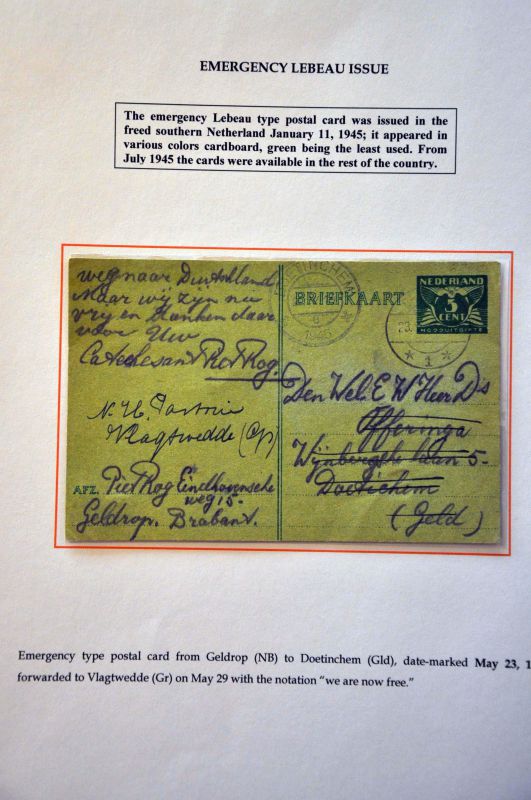 EMERGENCY LEBEAU ISSUE
The emergency Lebeau type postal card was issued in the
freed southern Netherland January 11, 1945; it appeared in
various colors cardboard, green being the least used. From
July 1945 the cards were available in the rest of the country.
weg naar Duitschland
Maar wij zyn nu
vry en danken daar
voor Uw
Catechesant Piet Rog.
N. H. Pastorie
Vlagtwedde (Gr)
AFZ. Piet Rog Eindhovensche
weg 15.
Geldrop. Brabant.
TINCHEM
1945
BRIEFKAART
NEDERLAND
5
CENT
NOODUITGIFTE
23.
1
Den Wel. E W Heer Ds
Offeringa
Wijnbergsche laan 5.
Doetichem
(Geld)
Emergency type postal card from Geldrop (NB) to Doetinchem (Gld), date-marked May 23, 1
forwarded to Vlagtwedde (Gr) on May 29 with the notation "we are now free."